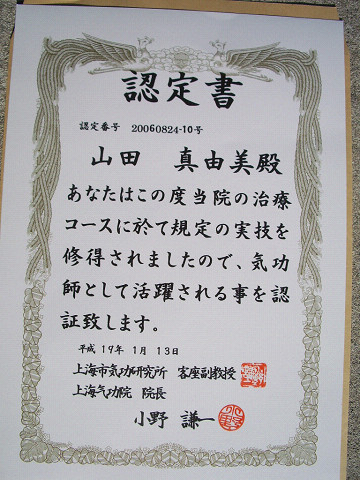 認定書
認定番号 20060824-10号
山田 真由美殿
あなたはこの度当院の治療
コースに於て規定の実技を
修得されましたので、気功
師として活躍される事を認
証致します。
平成 19年 1月 13日
上海市気功研究所 客座副教授
上海気功院 院長
小野 謙一